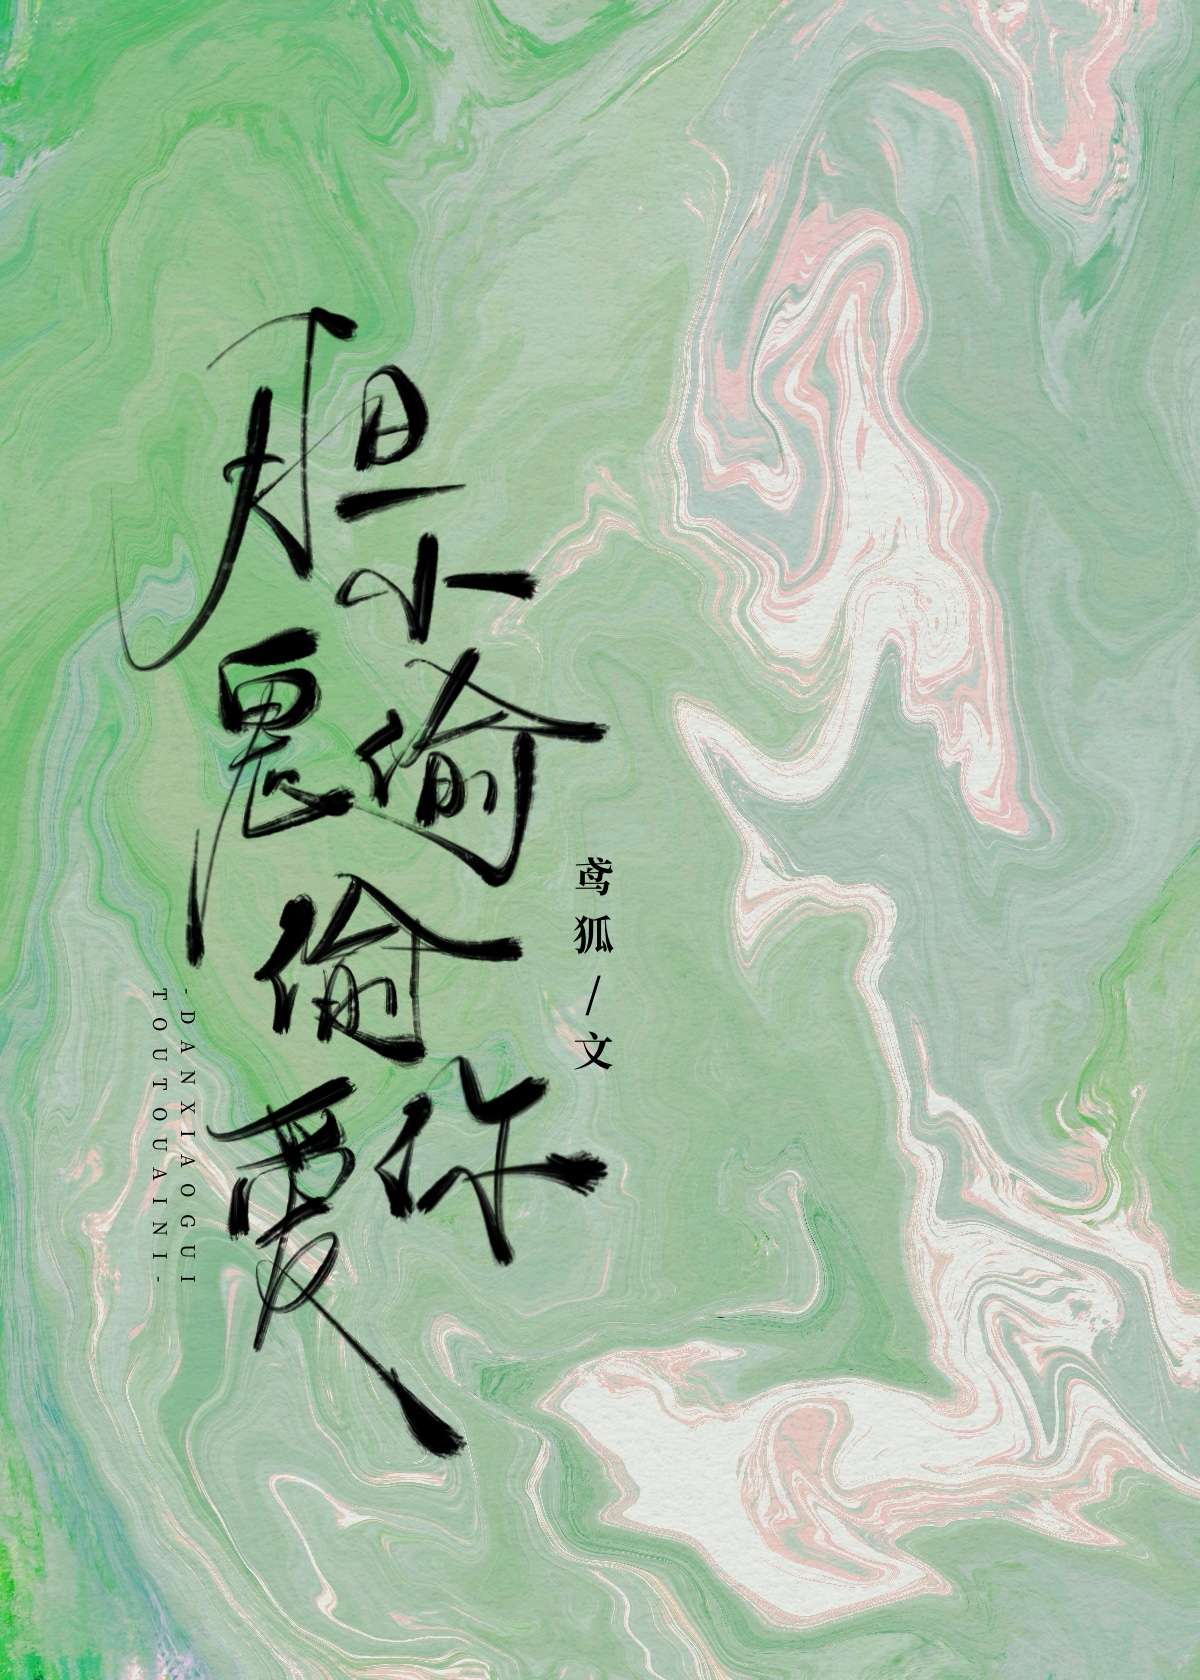 胆小鬼偷偷爱你
鸢狐/文
-DANXIAOGUI
TOUTOUAINI-